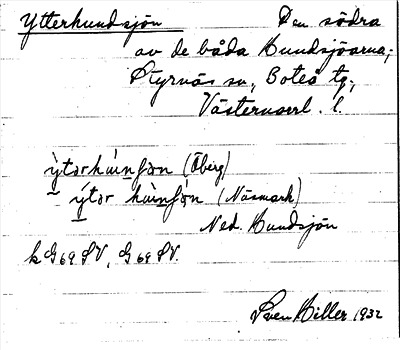 Ytterhundsjön Den södra
av de båda Hundsjöarna;
Styrnäs sn, Boteå tg.,
Västernorrl. l.
ỳtərhùnʃøn (Öberg)
ỳtər hùnʃøn (Näsmark)
Ned. Hundsjön
k G 69 SV, G 69 SV.
Sven Hiller 1932